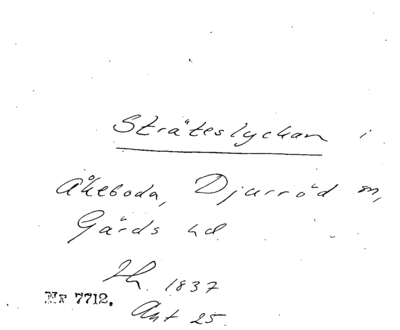 Sträteslyckan i
Åkeboda, Djurröd sn,
Gärds hd
Lh. 1837
Nr 7712.
Akt 25.